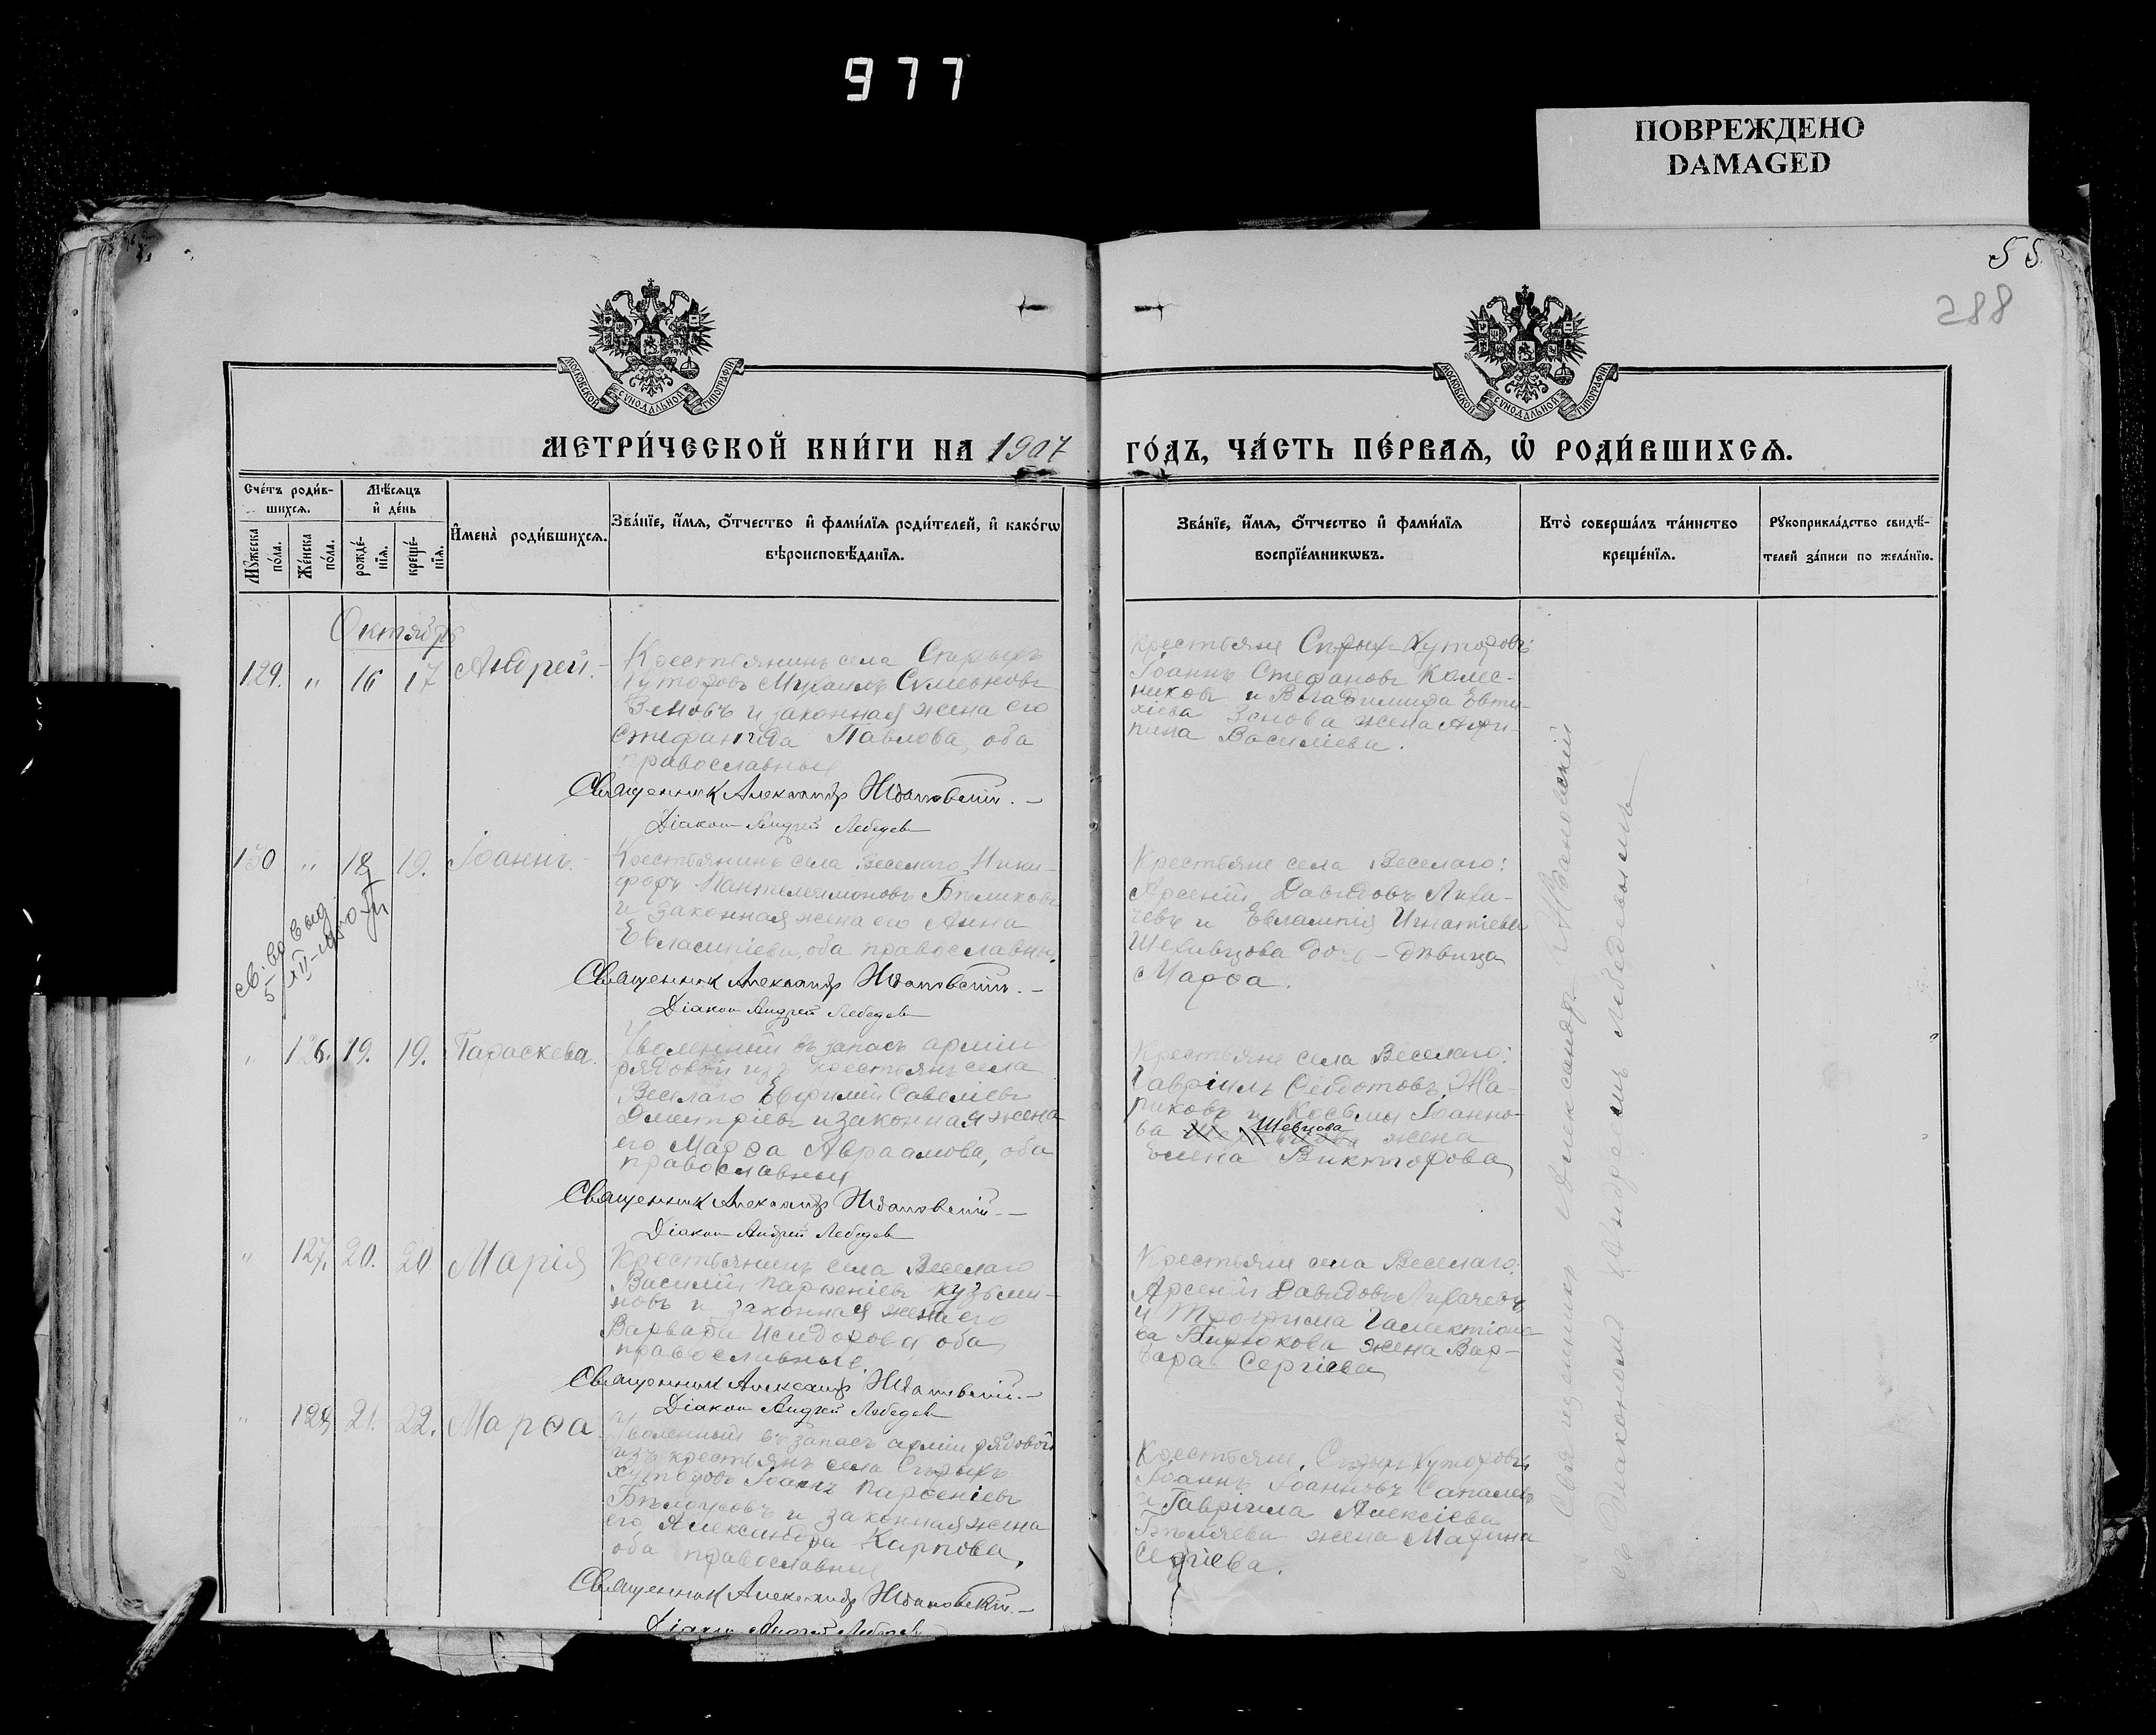 977
ПОВРЕЖДЕНО
DAMAGED
55
288
МОСКОВСКОЙ СУНОДАЛЬНОЙ ТИПОГРАФІИ
МОСКОВСКОЙ СУНОДАЛЬНОЙ ТИПОГРАФІИ
МЕТРИ́ЧЕСКОЙ КНИ́ГИ НА 1907
ГО́ДЪ, ЧА́СТЬ ПЕ́РВАѦ, Ѡ҆ РОДИ́ВШИХСѦ.
Сче́тъ роди́в-
шихсѧ.
Мѣ́сѧцъ
и҆ де́нь
Мꙋ́жеска
по́ла.
Же́нска
по́ла.
рожде́-
нїѧ.
креще́-
нїѧ.
И҆мена̀ роди́вшихсѧ.
Зва́нїе, и҆́мѧ, ѻ҆́тчество и҆ фами́лїѧ роди́телей, и҆ како́гѡ
вѣроисповѣ́данїѧ.
Зва́нїе, и҆́мѧ, ѻ҆́тчество и҆ фами́лїѧ
воспрїе́мникѡвъ.
Кто̀ соверша́лъ та́инство
креще́нїѧ.
Рꙋкоприкла́дство свидѣ́-
телей за́писи по жела́нїю.
Октябрь
129. " 16 17 Андрей.
Крестьянинъ села Старыхъ
Хуторовъ Михаилъ Сѵмеоновъ
Зеновъ и законная жена его
Стефанида Павлова, оба
православные
Священникъ Александръ Ждановскій.
Діаконъ Андрей Лебедевъ
Крестьяне Старых-Хуторовъ:
Іоаннъ Стефановъ Колес-
никовъ и Владимира Евти-
хіева Зенова жена Агри-
пина Василіева.
130 " 18 19. Іоаннъ.
Крестьянинъ села Веселаго Ники-
форъ Пантелеимоновъ Бѣликовъ
и законная жена его Анна
Евлампіева, оба православны.
Священникъ Александръ Ждановскій.
Діаконъ Андрей Лебедевъ
Крестьяне села Веселаго:
Арсеній Давидовъ Лиха-
чевъ и Евлампія Игнатіева
Шехавцова дочь - дѣвица
Марѳа.
" 126. 19. 19. Параскева.
Уволенный въ запасъ арміи
рядовой изъ крестьянъ села
Веселаго Евфимій Савеліевъ
Дмитріевъ и законная жена
его Марѳа Авраамова, оба
православные
Священникъ Александръ Ждановскій.
Діаконъ Андрей Лебедевъ
Крестьяне села Веселаго:
Гавріилъ Ѳеодотовъ Жа-
риковъ и Косьмы Іоанно-
ва Шевцова жена
Елена Викторова
" 127. 20. 20 Марія
Крестьянинъ села Веселаго
Василій Парѳеніевъ Кузьми-
новъ и законная жена его
Варвара Исидорова, оба
православные
Священникъ Александръ Ждановскій.
Діаконъ Андрей Лебедевъ
Крестьяне села Веселаго:
Арсеній Давидовъ Лихачевъ
и Трофима Галактіоно-
ва Бирюкова жена Вар-
вара Сергіева
" 128 21. 22. Марѳа
Уволенный въ запасъ арміи рядовой
изъ крестьянъ села Старыхъ
Хуторовъ Іоаннъ Парѳеніевъ
Бѣлоусовъ и законная жена
его Александра Карпова,
оба православные
Священникъ Александръ Ждановскій.
Діаконъ Андрей Лебедевъ
Крестьяне Старых Хуторовъ
Іоаннъ Іоанновъ
и Гавріила Алексіева
Бѣляева жена Марина
Сергіева.
Священникъ Александръ Ждановскій
съ діакономъ Андреемъ Лебедевымъ